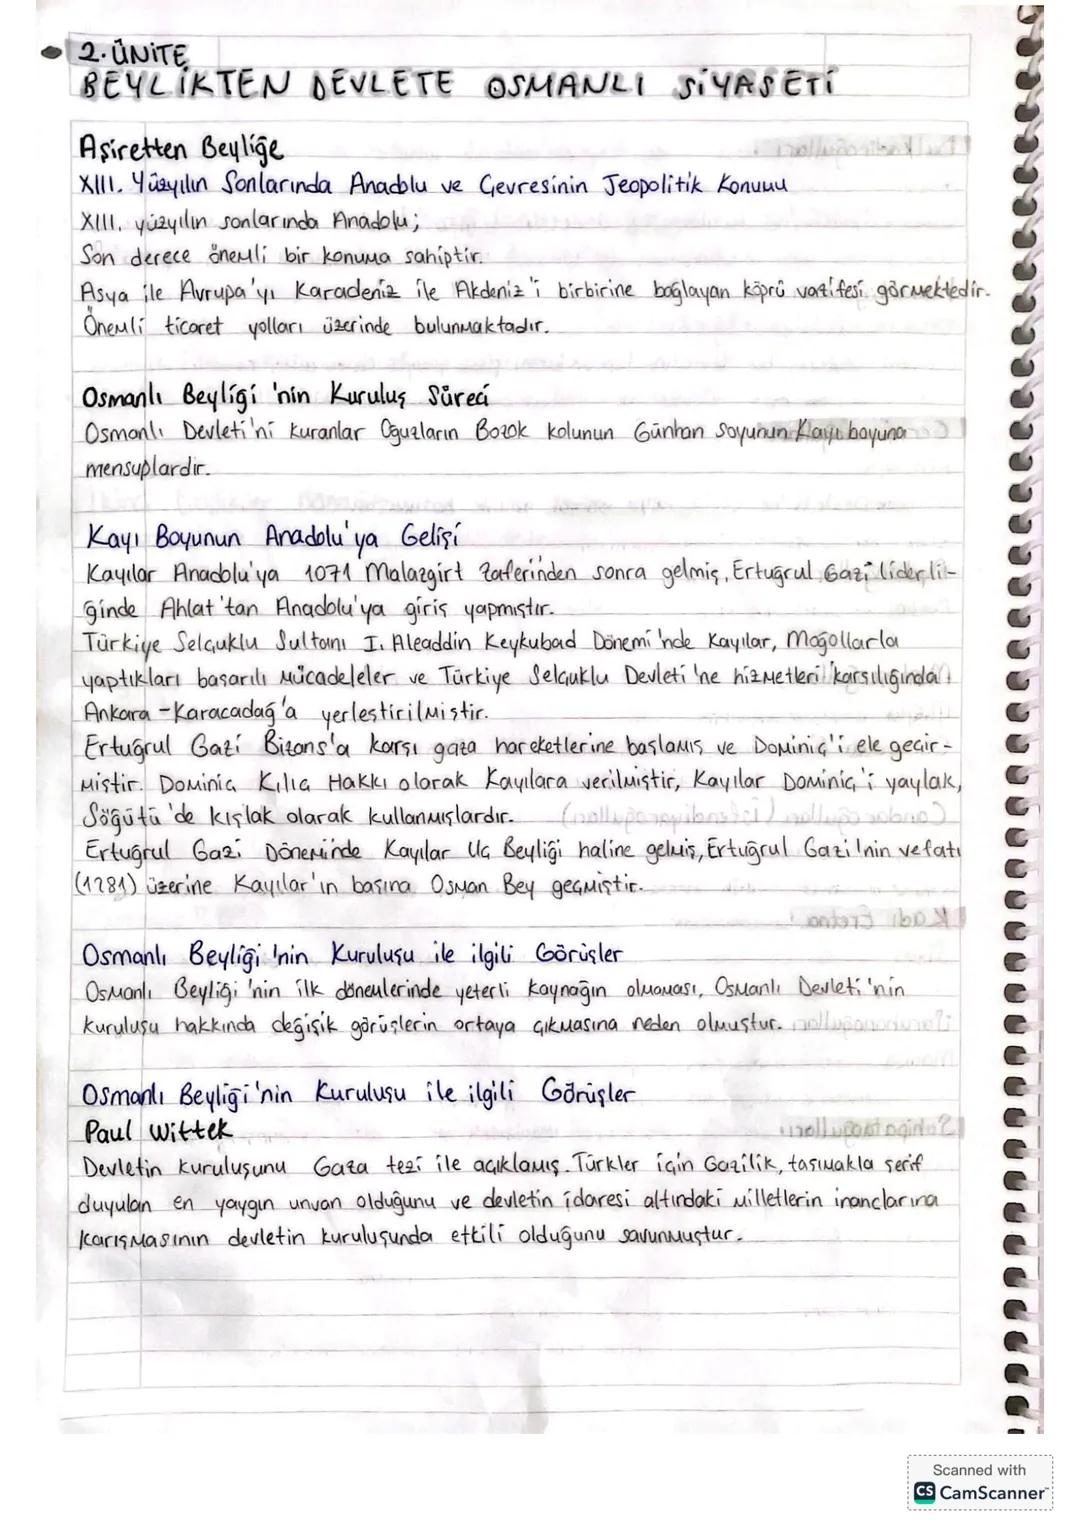 2. ÜNİTE
BEYLİKTEN DEVLETE OSMANLI SİYASETİ
Aşiretten Beyliğe
XIII. Yüzyılın Sonlarında Anadolu ve Çevresinin Jeopolitik Konumu
XIII. yüzyılın sonlarında Anadolu;
Son derece önemli bir konuma sahiptir.
Asya ile Avrupa'yı Karadeniz ile Akdeniz'i birbirine bağlayan köprü vazifesi görmektedir.
Önemli ticaret yolları üzerinde bulunmaktadır.
Osmanlı Beyliği'nin Kuruluş Süreci
Osmanlı Devleti'ni kuranlar Oğuzların Bozok kolunun Günhan soyunun Kayı boyuna
mensuplardır.
Kayı Boyunun Anadolu'ya Gelişi
Kayılar Anadolu'ya 1071 Malazgirt zaferinden sonra gelmiş, Ertuğrul Gazi liderli-
ğinde Ahlat'tan Anadolu'ya giriş yapmıştır.
Türkiye Selçuklu Sultanı I. Aleaddin Keykubad Dönemi'nde Kayılar, Moğollarla
yaptıkları başarılı mücadeleler ve Türkiye Selçuklu Devleti'ne hizmetleri karşılığında
Ankara-Karacadağ'a yerleştirilmiştir.
Ertuğrul Gazi Bizans'a karşı gaza hareketlerine başlamış ve Dominiç'i ele geçir-
miştir. Dominiç Kılıç Hakkı olarak Kayılara verilmiştir, Kayılar Dominiç'i yaylak,
Söğütü'de kışlak olarak kullanmışlardır.
Ertuğrul Gazi Döneminde Kayılar Uç Beyliği haline gelmiş, Ertuğrul Gazi'nin vefatı
(1281) üzerine Kayılar'ın başına Osman Bey geçmiştir.
Osmanlı Beyliği'nin Kuruluşu ile ilgili Görüşler
Osmanlı Beyliği'nin ilk dönemlerinde yeterli kaynağın olmaması, Osmanlı Devleti'nin
kuruluşu hakkında değişik görüşlerin ortaya çıkmasına neden olmuştur.
Osmanlı Beyliği'nin Kuruluşu ile ilgili Görüşler
Paul Wittek
Devletin kuruluşunu Gaza tezi ile açıklamış. Türkler için Gazilik, taşımakla şerif
duyulan en yaygın unvan olduğunu ve devletin idaresi altındaki milletlerin inançlarına
karışmasının devletin kuruluşunda etkili olduğunu savunmuştur.
Scanned with
CS CamScanner